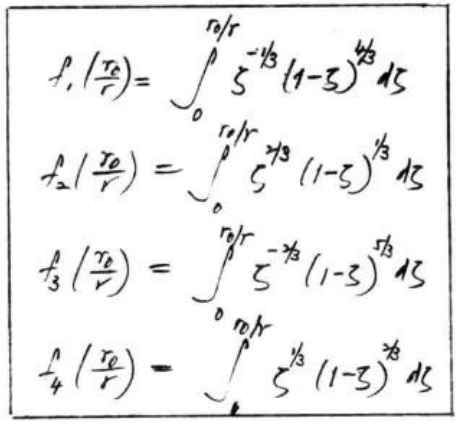 f₁(r₀/r) = ∫₀^{r₀/r} ζ^{-1/3} (1-ζ)^{4/3} dζ
f₂(r₀/r) = ∫₀^{r₀/r} ζ^{2/3} (1-ζ)^{1/3} dζ
f₃(r₀/r) = ∫₀^{r₀/r} ζ^{-2/3} (1-ζ)^{5/3} dζ
f₄(r₀/r) = ∫₀^{r₀/r} ζ^{1/3} (1-ζ)^{2/3} dζ